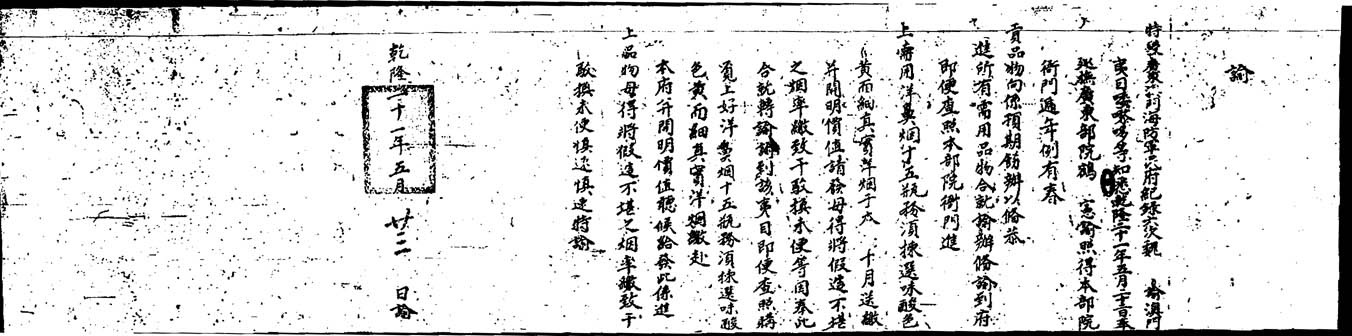 諭
特授廣東 海防軍民府紀錄 次魏 諭澳門
夷目 等知悉乾隆二十一年五月二十二日奉
巡撫廣東部院鶴 憲諭照得本部院
衙門遞年例有春
貢品物向係預期飭辦以備恭
進所有需用品物合就諭辦備諭到府
即便查照本部院衙門進
上需用洋鼻烟十五瓶務須揀選味酸色
黃而細真實洋烟于六 十月送繳
并開明價值請發毋得將假造不堪
之烟率繳致干駁換未便等因奉此
合就轉諭諭到該夷目即便查照購
覓上好洋鼻烟十五瓶務須揀選味酸
色黃而細真實洋烟繳赴
本府并開明價值聽候給發此係進
上品物毋得將假造不堪之烟率繳致干
駁換未便慎速慎速特諭
乾隆二十一年五月 廿二 日諭